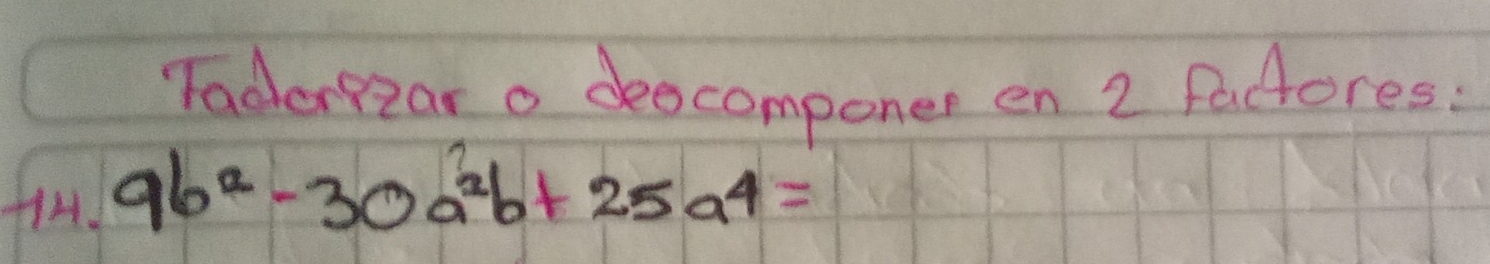 Factorizar o descomponer en 2 factores:
14. 9b² - 30a²b + 25a⁴ =